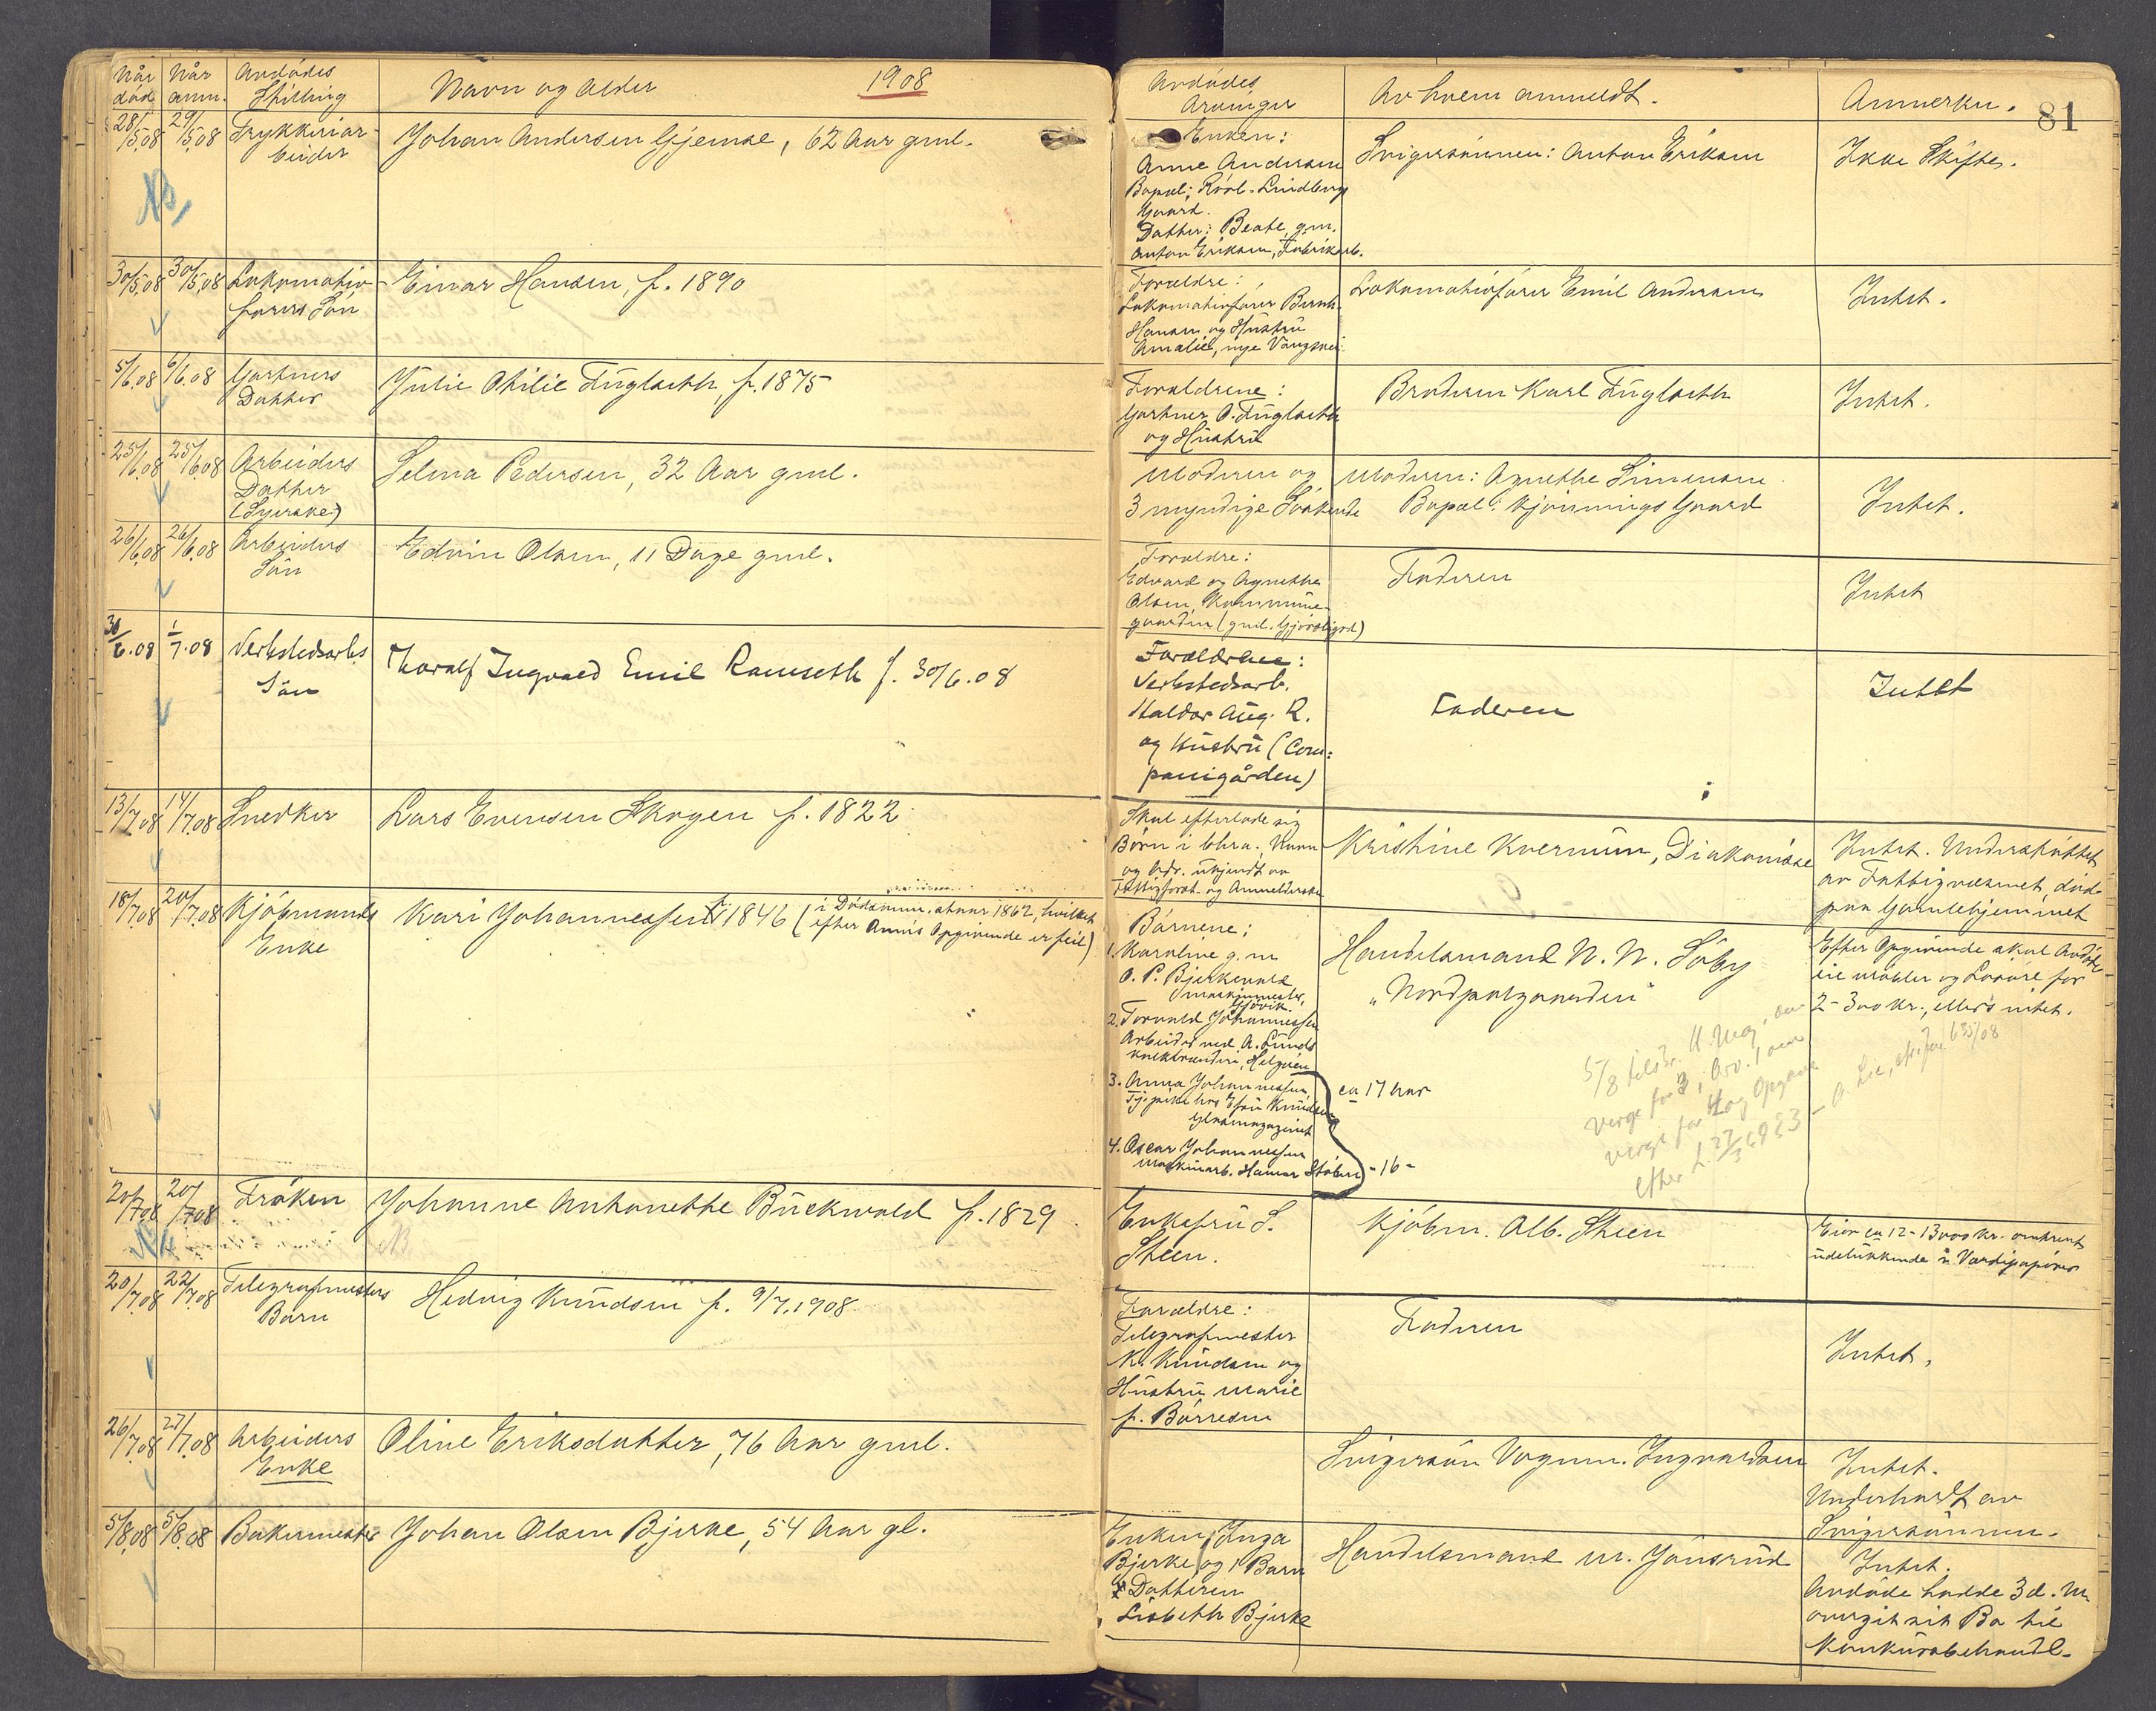 Når død
Når anm.
Avdødes Stilling
Navn og Alder
1908
Avdødes Arvinger
Av hvem anmeldt.
Anmerkn.
81
28/5.08
29/5.08
Trykkeriar-
beider
Johan Andersen Gjemse, 62 Aar gml.
Enken:
Anne Andersen
Bopæl: Lindbergs
Gaard.
Datter: Beate, g.m.
Anton Eriksen, Fabrikarb.
Svigersønnen: Anton Eriksen
Ikke Skifte.
NB,
30/5.08
30/5.08
Lokomotiv-
førers Søn
Einar Hansen, f. 1890
Forældre:
Lokomotivfører Bernh.
Hansen og Hustru
Amalie, nye Vangsvei.
Lokomotivfører Emil Andersen
Intet.
5/6.08
6/6.08
Gartners
Datter
Julie Otilie Fuglseth, f. 1875
Forældrene:
Gartner O. Fuglseth
og Hustru
Broderen Karl Fuglseth
Intet.
25/6.08
25/6.08
Arbeiders
Datter
(Syerske)
Selma Pedersen, 32 Aar gml.
Moderen og
3 myndige Søskende
Moderen: Agnethe Simensen
Bopæl: Kjønnings Gaard
Intet.
26/6.08
26/6.08
Arbeiders
Søn
Edvin Olsen, 11 Dage gml.
Forældre:
Edvard og Agnethe
Olsen, Kommune-
gaarden
Faderen
Intet
30/6.08
1/7.08
Verkstedsarb.s
Søn
Thoralf Ingvald Emil Ramseth f. 30/6.08
Forældrene:
Verkstedsarb.
Haldor Aug. R.
og Hustru (Com:
panigården)
Faderen
Intet
13/7.08
14/7.08
Snedker
Lars Evensen Skogen f. 1822
Skal efterlade sig
Børn i Chra., Navn
og Adr. ukjendt av
Fattigforst. og Anmeldersken
Kristine Kvernum, Diakonisse
Intet. Understøttet
av Fattigvæsenet, død
paa Gamlehjemmet
18/7.08
20/7.08
Kjøbmands
Enke
Kari Johannessen f. 1846 (i Dødsanm. staar 1862, hvilket
efter Anm.s Opgivende er feil)
Børnene:
1. Karoline g.m.
O. P. Bjerkevold
maskinmester,
Gjøvik.
2. Torvald Johannessen
Arbeider ved A. Lunds
Helgøen
3. Anna Johannessen,
Tj.pike hos Efru Knudsen
Glasmagazinet
ca 17 Aar
4. Oscar Johannessen
maskinarb. Hamar Støberi
- 16 -
Handelsmand N. N. Søby
"Nordpolgaarden"
Efter Opgivende skal Avdøde
eie Møbler og Løsøre for
2-300 Kr., ellers intet.
5/8
verge for 3, Arv. 1 om
verge for 4 og Opgave
efter L. 27/5 1983
635/08
20/7.08
20/7.08
Frøken
Johanne Antonette Buckwald f. 1829
NB
Enkefru S.
Steen.
Kjøbm. Alb. Steen
Eier ca 12-13000 Kr. omtrent
udelukkende i Værdipapirer
20/7.08
22/7.08
Telegrafmesters
Barn
Hedvig Knudsen f. 9/7.1908
Forældre:
Telegrafmester
K. Knudsen og
Hustru Marie
f. Børresen
Faderen
Intet.
26/7.08
27/7.08
Arbeiders
Enke
Oline Eriksdatter, 76 Aar gml.
Svigersøn Vognm. Ingvaldsen
Intet.
Underholdt av
Svigersønnen.
5/8.08
5/8.08
Bakermester
Johan Olsen Bjerke, 54 Aar gl.
Enken, Inga
Bjerke, og 1 Barn
Datteren
Lisbeth Bjerke
Handelsmand M. Jønsrud
Intet.
Avdøde hadde 3 d. M.
overgit sit Bo til
Konkursbehandl.